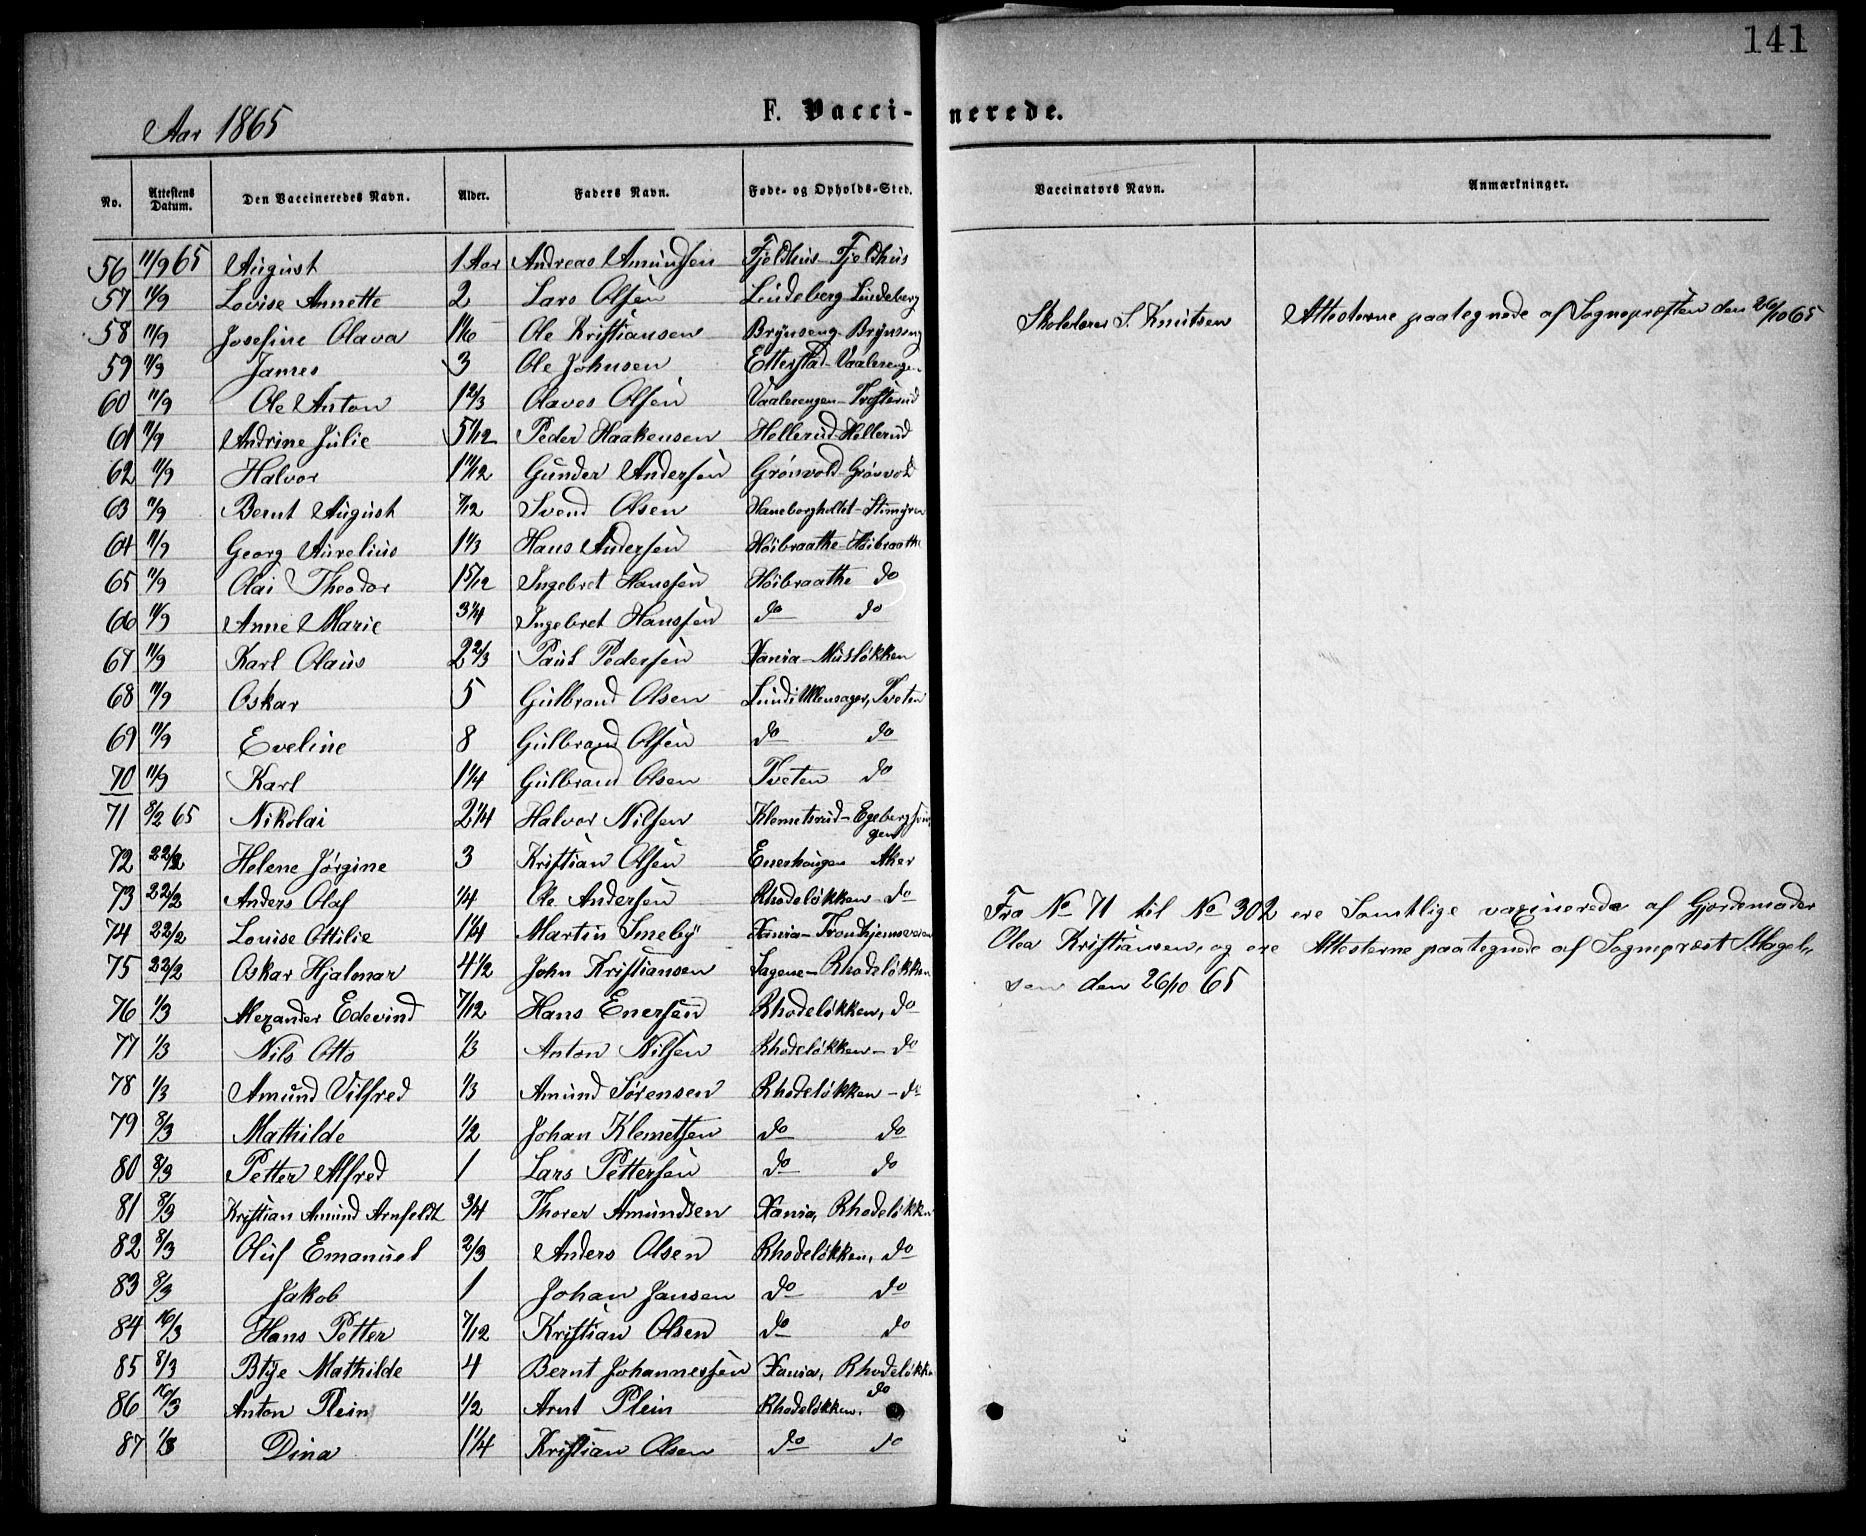 141
Aar 1865
F. Vaccinerede.
No. Attestens Datum. Den Vaccineredes Navn. Alder. Faders Navn. Føde- og Opholds-Sted. Vaccinators Navn. Anmærkninger.
56 11/9 65 August 1 Aar Andreas Amundsen Fjeldhus - Fjeldhus
57 11/9 Lovise Annette 2 Lars Olsen Lindeberg - Lindeberg Skolelærer S. Knutsen Attesterne paategnede af Sognepræsten den 26/10 65
58 11/9 Josefine Olava 1 1/6 Ole Kristiansen Brynseng - Brynseng
59 11/9 James 3 Ole Johnsen Etterstad - Vaalerengen
60 11/9 Ole Anton 1 2/3 Olaves Olsen Vaalerengen - Trosterud
61 11/9 Andrine Julie 5 1/12 Peder Haakensen Hellerud - Hellerud
62 11/9 Halvor 1 11/12 Gunder Andersen Grønvold - Grønvold
63 11/9 Bernt August 7/12 Svend Olsen Haneborgholtet -
64 11/9 Georg Aurelius 1 1/3 Hans Andersen Høibraathe - Høibraathe
65 11/9 Olai Theodor 1 5/12 Ingebret Hanssen Høibraathe do
66 11/9 Anne Marie 3 1/4 Ingebret Hanssen do do
67 11/9 Karl Olaus 2 2/3 Paul Pedersen Xania - Musløkken
68 11/9 Oskar 5 Gulbrand Olsen Lund i Ullensager, Tveten
69 11/9 Eveline 8 Gulbrand Olsen do do
70 11/9 Karl 1 1/4 Gulbrand Olsen Tveten do
71 8/2 65 Nikolai 2 1/4 Halvor Nilsen Klemetsrud -
72 22/2 Helene Jørgine 3 Kristian Olsen Enerhaugen Aker
73 22/2 Anders Olaf 1/4 Ole Andersen Rhodeløkken - do Fra No 71 til No 302 ere Samtlige vaxinerede af Gjordemoder
74 22/2 Louise Ottilie 1 1/4 Martin Smeby Xania - Trondhjemsveien Olea Kristiansen, og ere Attesterne paategnede af Sognepræst Magel-
75 22/2 Oskar Hjalmar 4 1/2 John Kristiansen Sagene - Rhodeløkken sen den 26/10 65
76 1/3 Alexander Edevind 7/12 Hans Enersen Rhodeløkken, do
77 1/3 Nils Otto 1/3 Anton Nilsen Rhodeløkken - do
78 1/3 Amund Vilfred 1/3 Amund Sørensen Rhodeløkken - do
79 8/3 Mathilde 1/2 Johan Klemetsen do do
80 8/3 Petter Alfred 1 Lars Pettersen do do
81 8/3 Kristian Amund Arnfeldt 3/4 Thorer Amundsen Xania, Rhodeløkken
82 8/3 Oluf Emanuel 2/3 Anders Olsen Rhodeløkken, do
83 8/3 Jakob 1 Johan Jansen do do
84 16/3 Hans Petter 7/12 Kristian Olsen do do
85 8/3 Mathilde 4 Bernt Johannessen Xania, Rhodeløkken
86 16/3 Anton Plein 1/2 Arnt Plein Rhodeløkken, do
87 1/3 Dina 1 1/4 Kristian Olsen do do